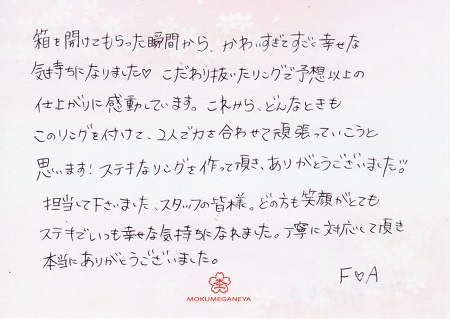 箱を開けてもらった瞬間から、かわいすぎてすごく幸せな
気持ちになりました♡ こだわり抜いたリングで予想以上の
仕上がりに感動しています。これから、どんなときも
このリングを付けて、2人で力を合わせて頑張っていこうと
思います! ステキなリングを作って頂き、ありがとうございました!!
担当して下さいました、スタッフの皆様。どの方も笑顔がとても
ステキでいつも幸せな気持ちになれました。丁寧に対応して頂き
本当にありがとうございました。
F♡A
MOKUMEGANEYA